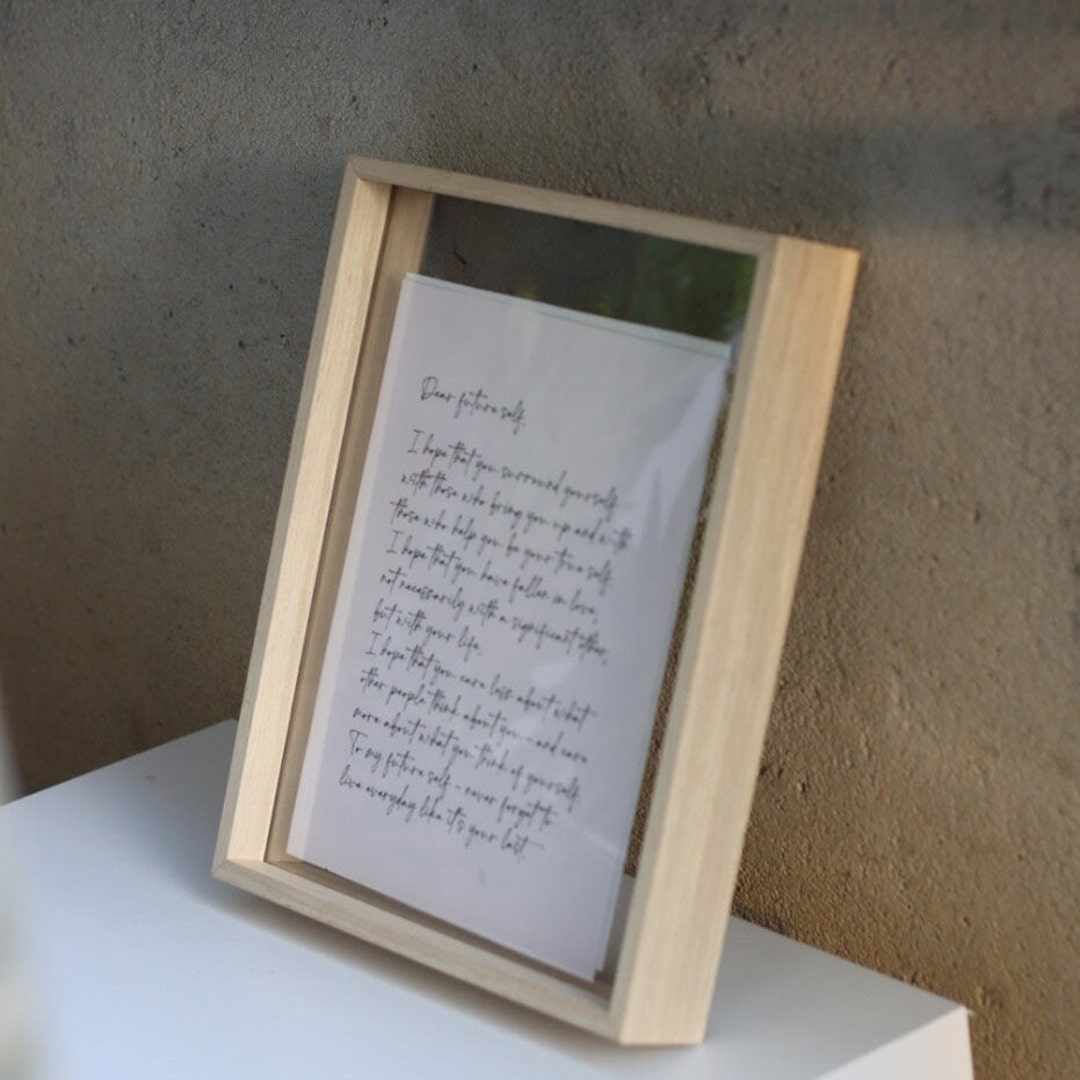 Dear future self,
I hope that you surround yourself
with those who bring you up and with
those who help you be your true self.
I hope that you have fallen in love,
not necessarily with a significant other,
but with your life.
I hope that you care less about what
other people think about you - and care
more about what you think of yourself.
To my future self - never forget to
live everyday like it's your last.